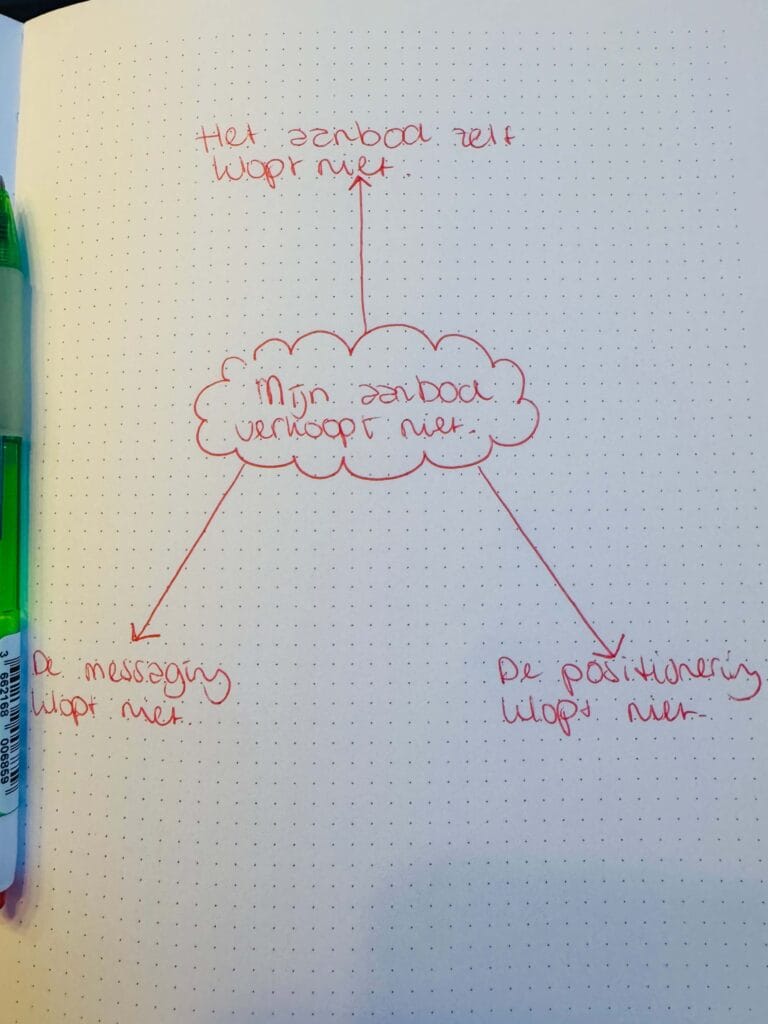 Het aanbod zelf
klopt niet.
Mijn aanbod
verkoopt niet.
De messaging
klopt niet.
De positionering
klopt niet.
3 662168 006859